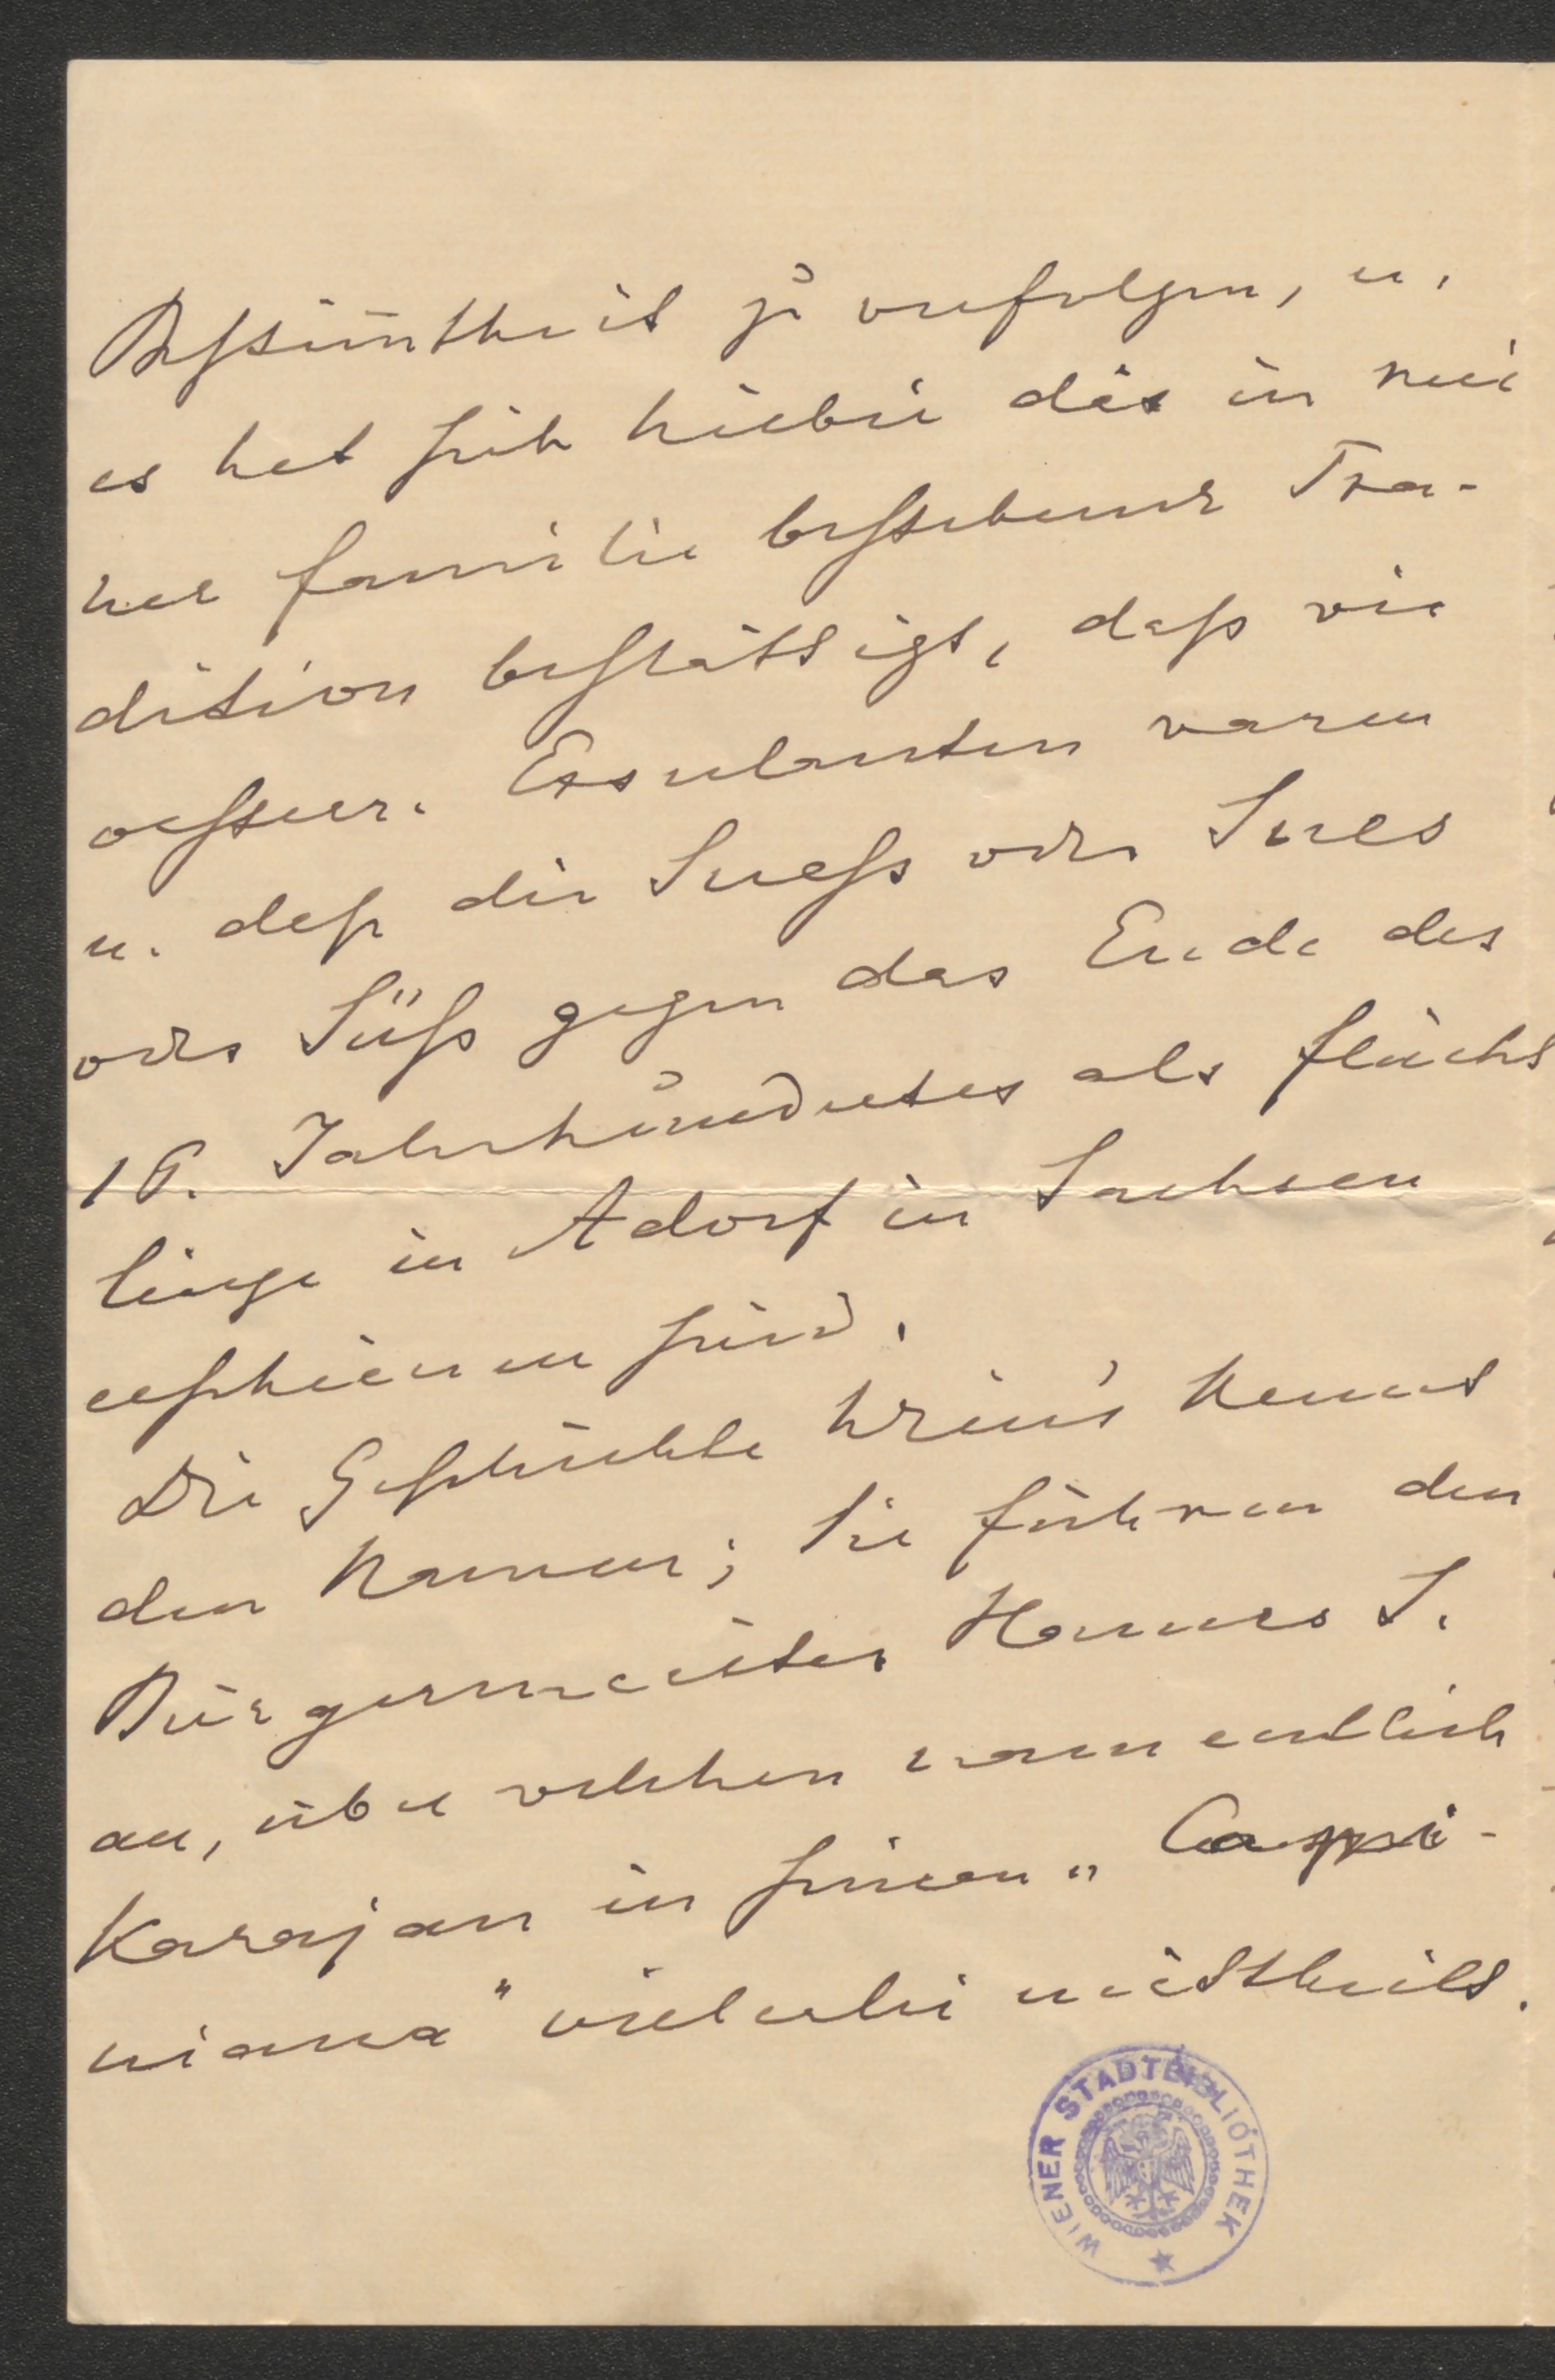 Bestimtheit zu verfolgen, u.
es hat sich hiebei die in mei
ner Familie bestehende Tra-
dition bestättigt, dass wir
oesterr. Exsulanten waren
u. dass die Suess oder Sues
oder Süss gegen das Ende des
16. Jahrhundertes als Flücht
linge in Adorf in Sachsen
erschienen sind.
Die Geschichte Wien's kennt
den Namen; Sie führen den
Bürgermeister Hanns S.
an, über welchen namentlich
Karajan in seinen „Cuspi-
niana" vielerlei mittheilt.
WIENER STADTBIBLIOTHEK